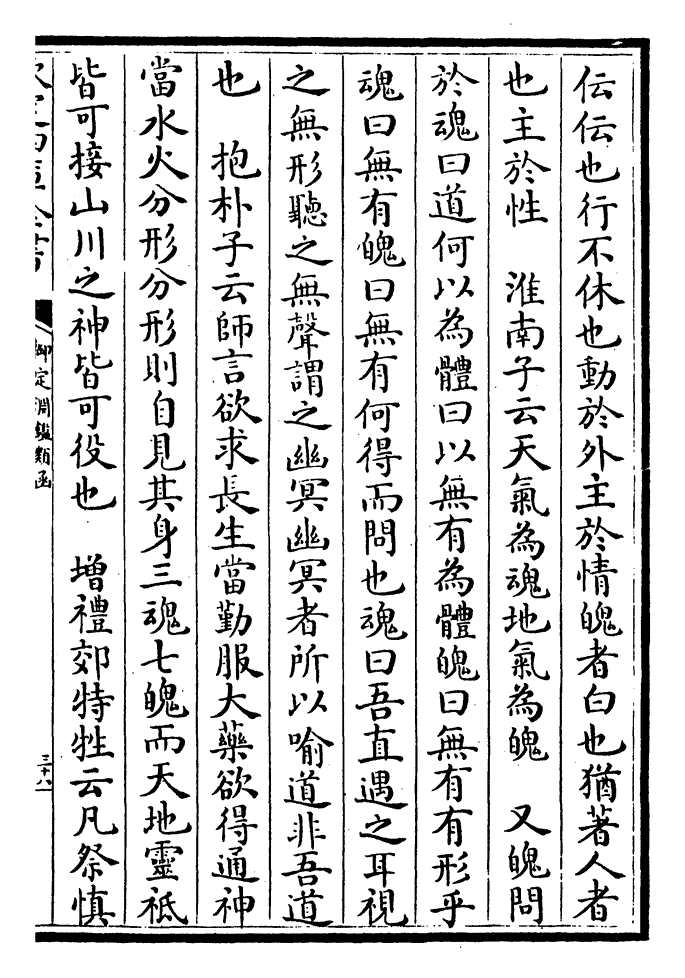 伝伝也行不休也動於外主於情魄者白也猶著人者
也主於性　淮南子云天氣為魂地氣為魄　又魄問
於魂曰道何以為體曰以無有為體魄曰無有有形乎
魂曰無有魄曰無有何得而問也魂曰吾直遇之耳視
之無形聽之無聲謂之幽冥幽冥者所以喻道非吾道
也　抱朴子云師言欲求長生當勤服大藥欲得通神
當水火分形分形則自見其身三魂七魄而天地靈祇
皆可接山川之神皆可役也　増禮郊特牲云凡祭慎
御定淵鑑類函
三十八